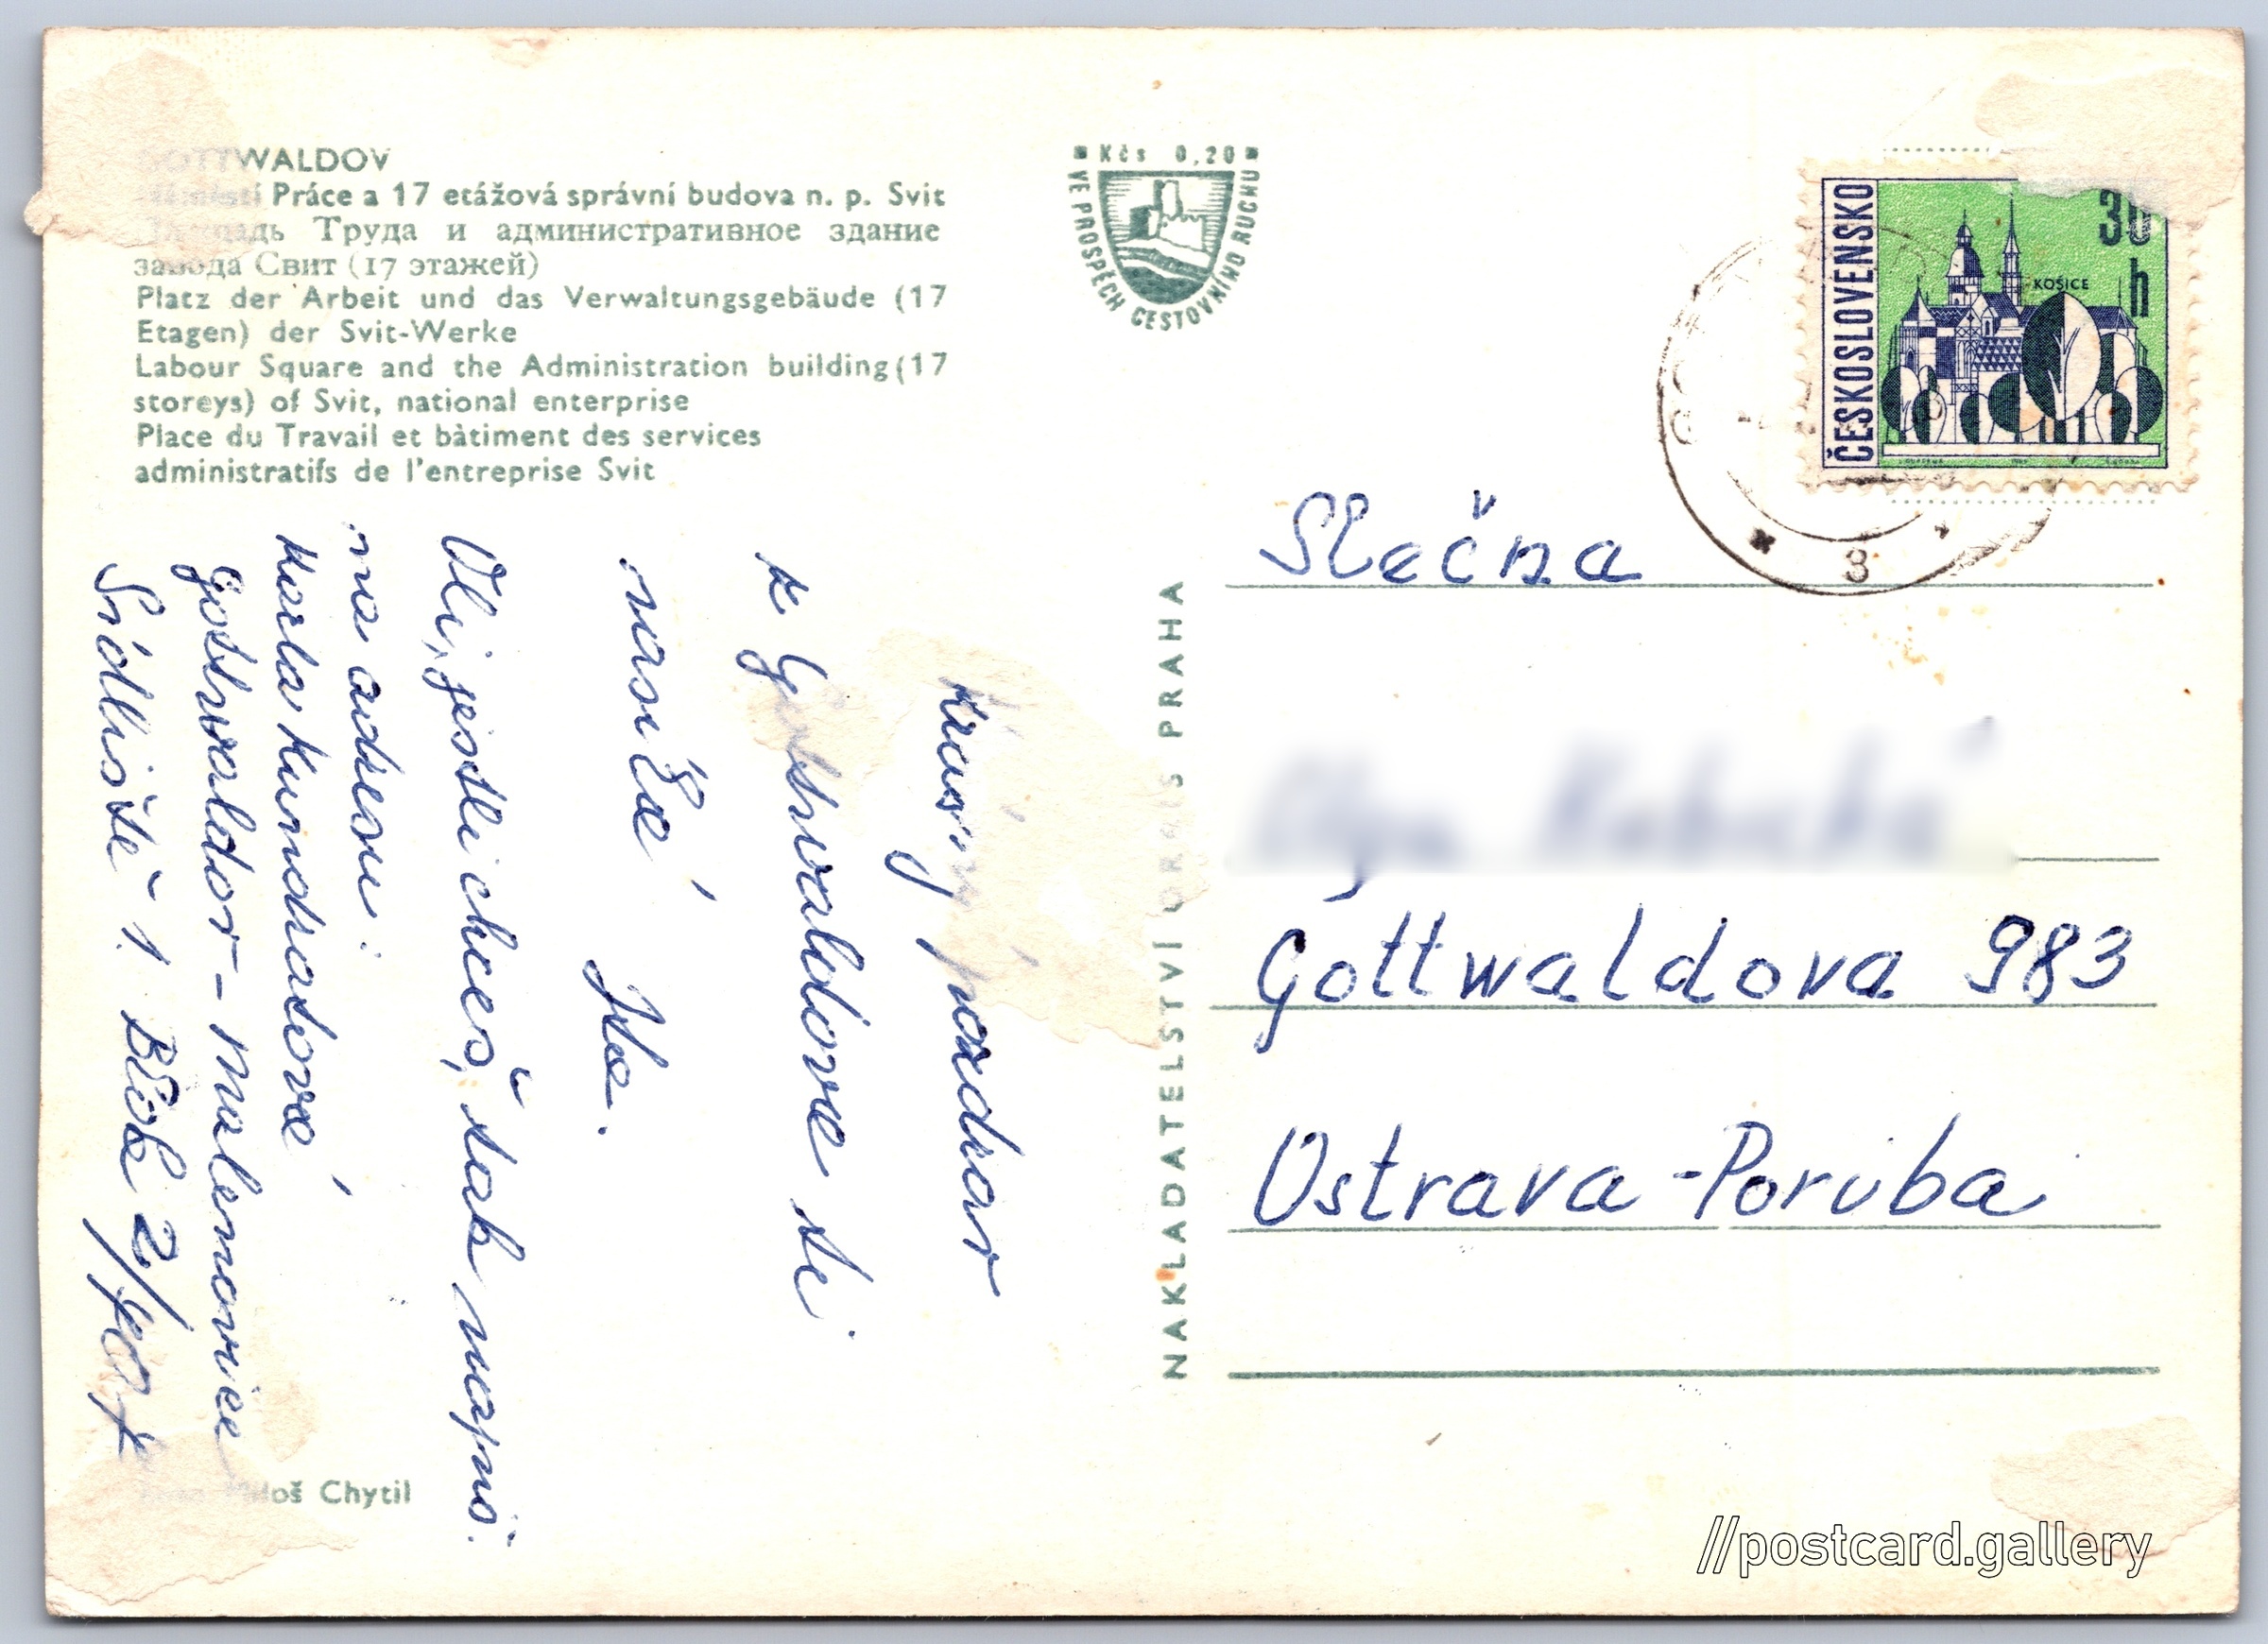 GOTTWALDOV
Náměstí Práce a 17 etážová správní budova n. p. Svit
Площадь Труда и административное здание
завода Свит (17 этажей)
Platz der Arbeit und das Verwaltungsgebäude (17
Etagen) der Svit-Werke
Labour Square and the Administration building (17
storeys) of Svit, national enterprise
Place du Travail et bâtiment des services
administratifs de l'entreprise Svit
Kčs 0,20
VE PROSPĚCH CESTOVNÍHO RUCHU
ČESKOSLOVENSKO
30
h
KOŠICE
3
Krásný pozdrav
z Gottwaldova ti
posílá
Olí, jestli chceš, tak napiš.
na adresu:
Gottwaldov - Malenovice
Sídliště 1. Blok 2/
NAKLADATELSTVÍ ORBIS PRAHA
Slečna
Gottwaldova 983
Ostrava-Poruba
Miloš Chytil
//postcard.gallery